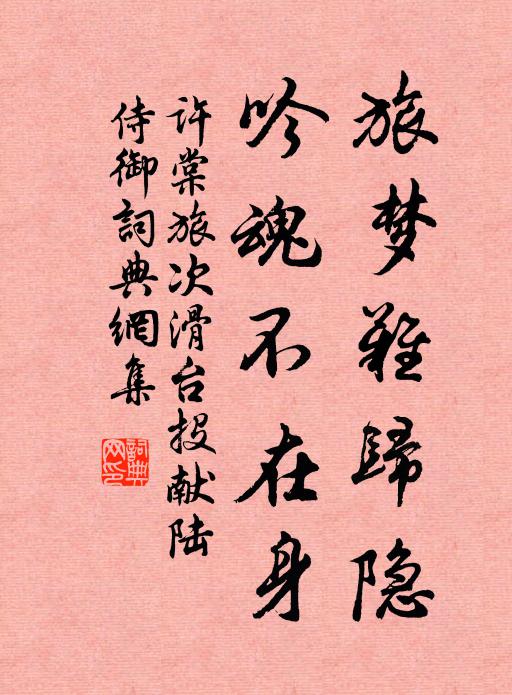 旅梦难歸隐
吟魂不在身
许棠旅次滑台投献陆
侍御詞典網集
詞典
网印